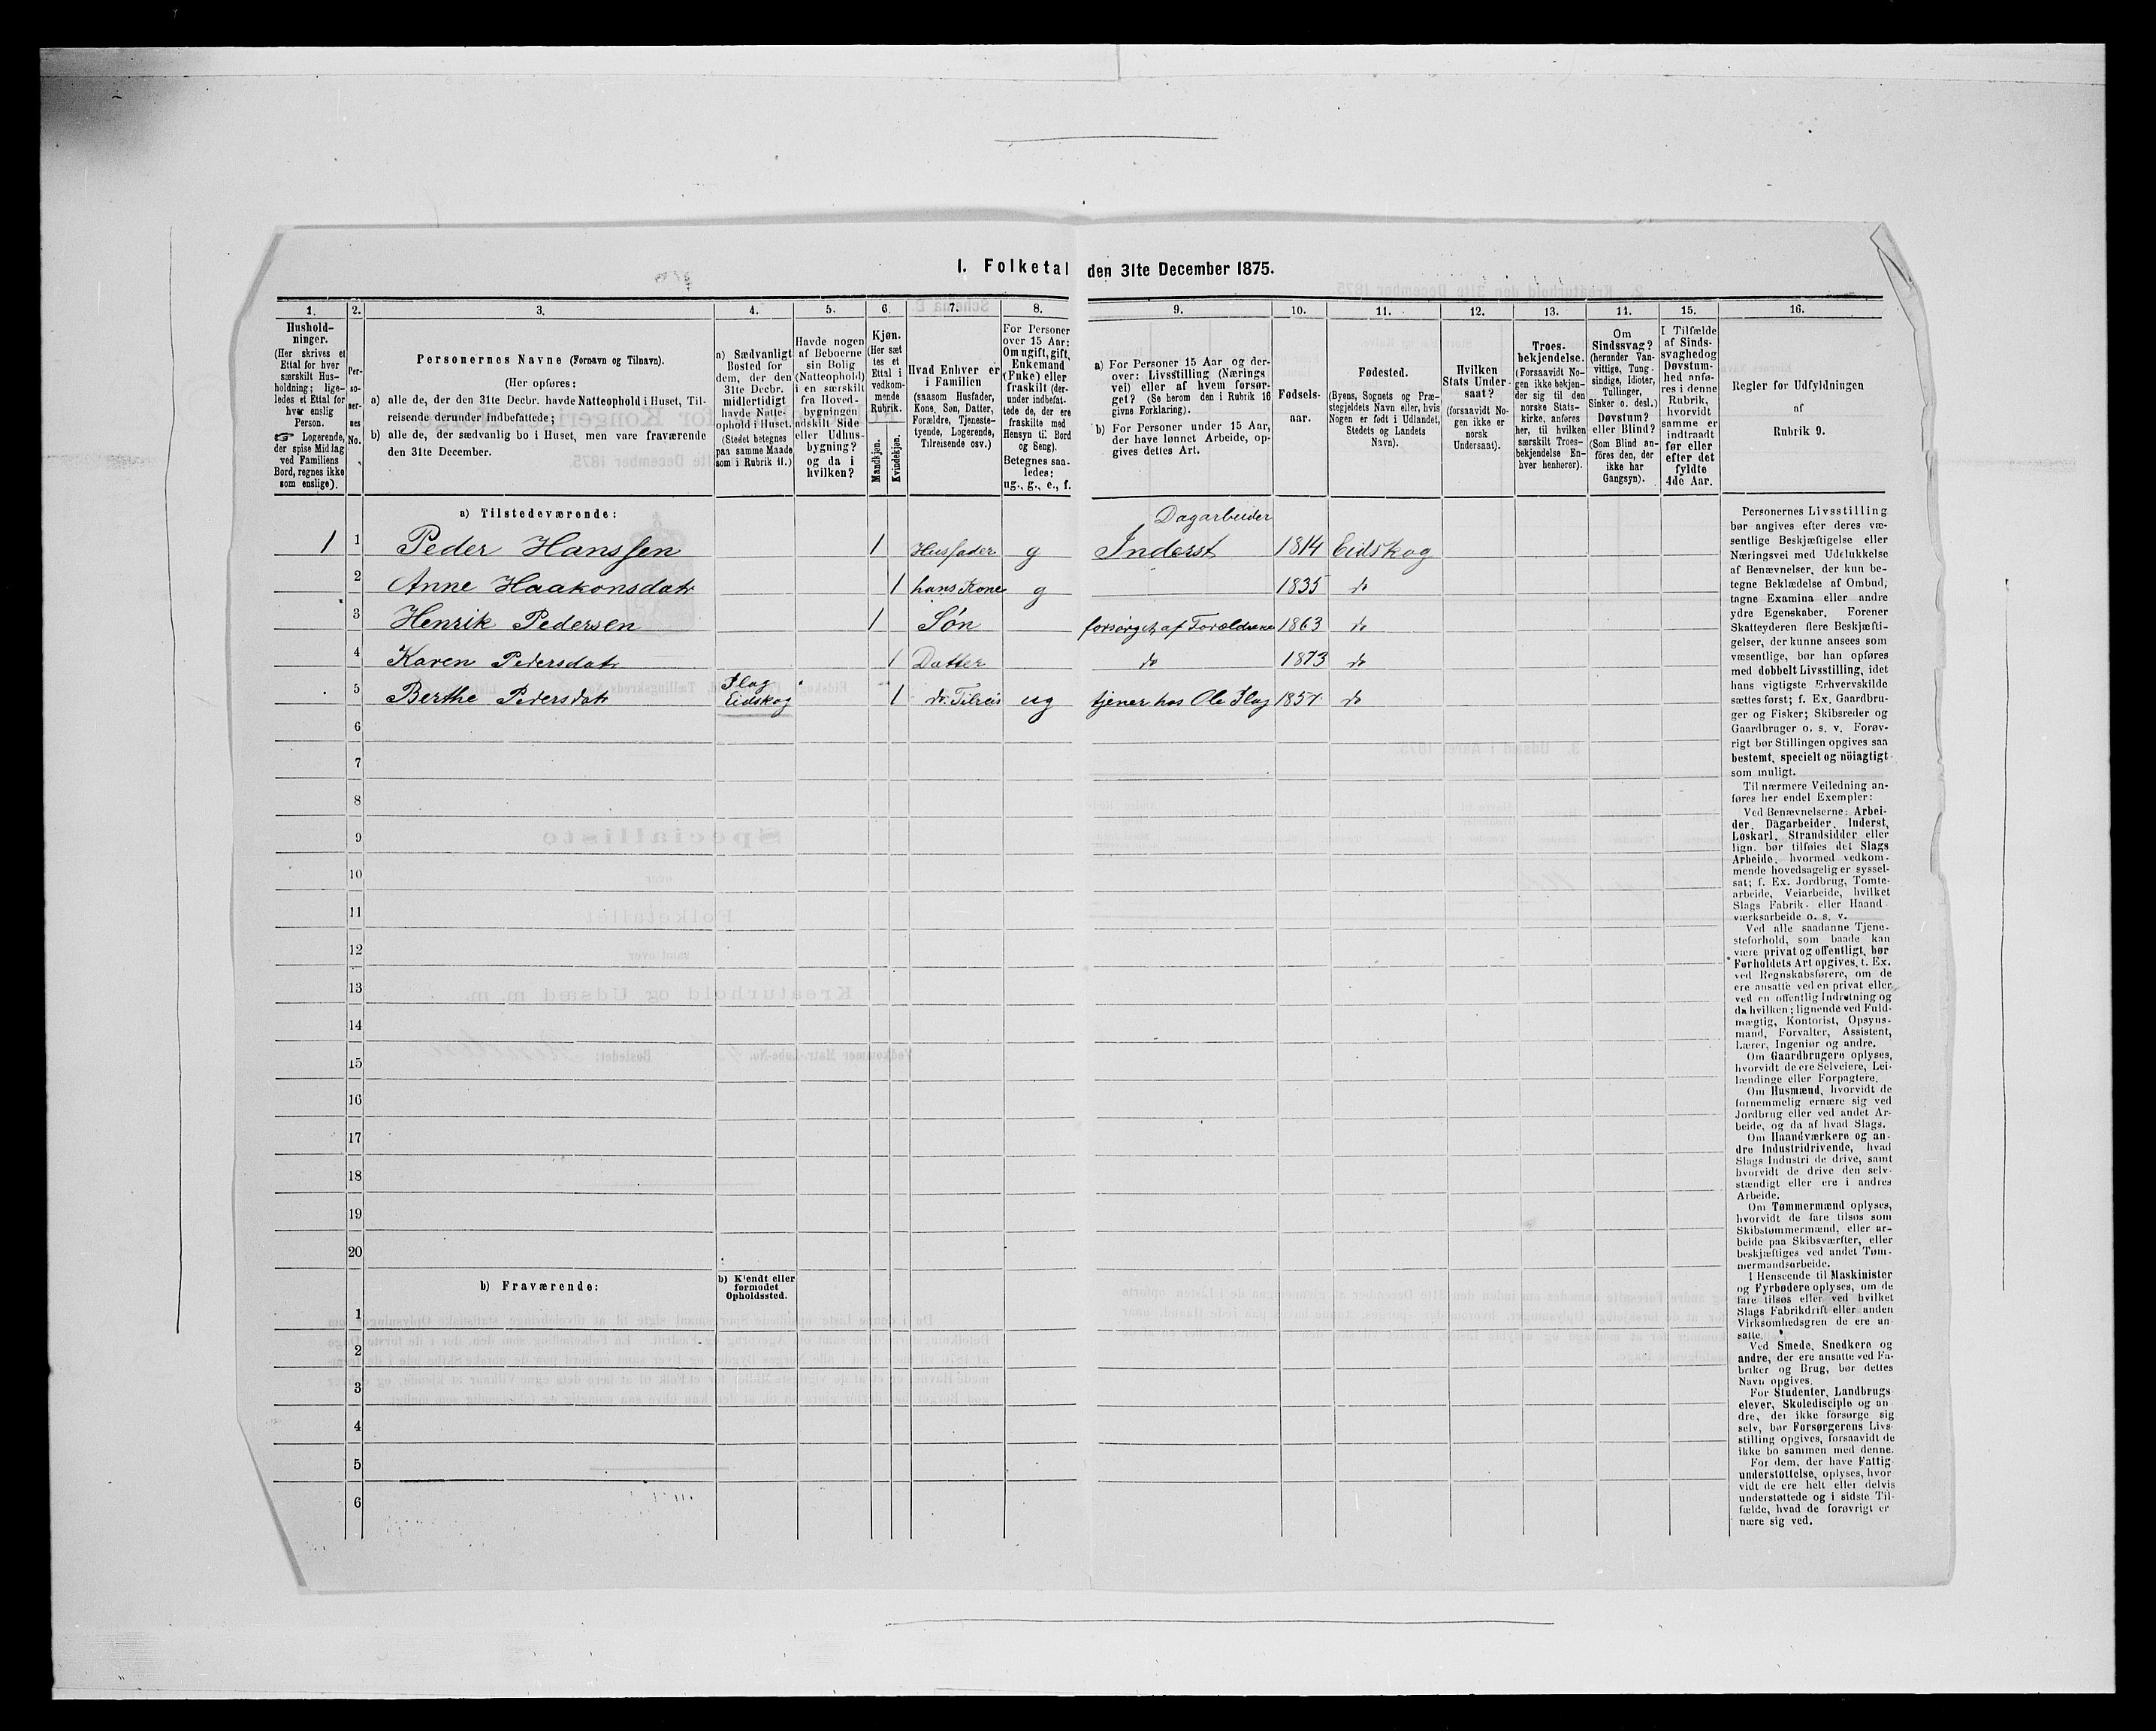 I. Folketal den 31te December 1875.
1.
2.
3.
4.
5.
6.
7.
8.
9.
10.
11.
12.
13.
14.
15.
16.
Hushold-
ninger.
(Her skrives et
Ettal for hver
særskilt Hus-
holdning; lige-
ledes et Ettal for
hver enslig
Person.
☞ Logerende,
der spise Middag
ved Familiens
Bord, regnes ikke
som enslige).
Per-
so-
ner-
nes
No.
Personernes Navne (Fornavn og Tilnavn).
(Her opføres:
a) alle de, der den 31te Decbr. havde Natteophold i Huset, Til-
reisende derunder indbefattede;
b) alle de, der sædvanlig bo i Huset, men vare fraværende
den 31te December.
a) Sædvanligt
Bosted for
dem, der den
31te Decbr.
midlertidigt
havde Natte-
ophold i Huset.
(Stedet betegnes
paa samme Maade
som i Rubrik 11.)
Havde nogen
af Beboerne
sin Bolig
(Natteophold)
i en særskilt
fra Hoved-
bygningen
adskilt Side
eller Udhus-
bygning?
og da i
hvilken?
Kjøn.
(Her sæt
tes et
Ettal i
vedkom-
mende
Rubrik.
Mandkjøn.
Kvindekjøn.
Hvad Enhver er
i Familien
(saasom Husfader,
Kone, Søn, Datter,
Forældre, Tjeneste-
tyende, Logerende,
Tilreisende osv.)
For Personer
over 15 Aar:
Om ugift, gift,
Enkemand
(Enke) eller
fraskilt (der-
under indbefat-
tede de, der ere
fraskilte med
Hensyn til Bord
og Seng).
Betegnes saa-
ledes:
ug., g., e., f.
a) For Personer 15 Aar og der-
over: Livsstilling (Nærings
vei) eller af hvem forsør-
get? (Se herom den i Rubrik 16
givne Forklaring).
b) For Personer under 15 Aar,
der have lønnet Arbeide, op-
gives dettes Art.
Fødsels-
aar.
Fødested.
(Byens, Sognets og Præ-
stegjeldets Navn eller, hvis
Nogen er født i Udlandet,
Stedets og Landets
Navn).
Hvilken
Stats Under-
saat?
(forsaavidt No-
gen ikke er
norsk
Undersaat).
Troes-
bekjendelse.
(Forsaavidt No-
gen ikke bekjen-
der sig til den
norske Stats-
kirke, anføres
her, til hvilken
særskilt Troes-
bekjendelse En-
hver henhører).
Om
Sindssvag?
(herunder Van-
vittige, Tung-
sindige, Idioter,
Tullinger,
Sinker o. desl.)
Døvstum?
eller Blind?
(Som Blind an-
føres den, der
ikke har
Gangsyn).
I Tilfælde
af Sinds-
svaghed og
Døvstum-
hed anfø-
res i denne
Rubrik,
hvorvidt
samme er
indtraadt
før eller
efter det
fyldte
4de Aar.
Regler for Udfyldningen
af
Rubrik 9.
a) Tilstedeværende:
Dagarbeider
1 1 Peder Hanssen 1 Husfader g Inderst 1814 Eidskog
2 Anne Haakonsdatr 1 hans Kone g 1835 do
3 Henrik Pedersen 1 Søn forsørget af Forældrene 1863 do
4 Karen Pedersdatr 1 Datter do 1873 do
5 Berthe Pedersdatr Flog
Eidskog 1 do. Tilreis ug tjener hos Ole Flog 1857 do
6
7
8
9
10
11
12
13
14
15
16
17
18
19
20
b) Fraværende:
b) Kjendt eller
formodet
Opholdssted.
1
2
3
4
5
6
Personernes Livsstilling
bør angives efter deres væ-
sentlige Beskjæftigelse eller
Næringsvei med Udelukkelse
af Benævnelser, der kun be-
tegne Beklædelse af Ombud,
tagne Examina eller andre
ydre Egenskaber. Forener
Skatteyderen flere Beskjæfti-
gelser, der kunne ansees som
væsentlige, bør han opføres
med dobbelt Livsstilling, idet
hans vigtigste Erhvervskilde
sættes først; f. Ex. Gaardbru-
ger og Fisker; Skibsreder og
Gaardbruger o. s. v. Forøv-
rigt bør Stillingen opgives saa
bestemt, specielt og nöiagtigt
som muligt.
Til nærmere Veiledning an-
føres her endel Exempler:
Ved Benævnelserne: Arbei-
der, Dagarbeider, Inderst,
Løskarl, Strandsidder eller
lign. bør tilføies det Slags
Arbeide, hvormed vedkom-
mende hovedsagelig er syssel-
sat; f. Ex. Jordbrug, Tomte-
arbeide, Veiarbeide, hvilket
Slags Fabrik- eller Haand-
værksarbeide o. s. v.
Ved alle saadanne Tjene-
steforhold, som baade kan
være privat og offentligt, bør
Forholdets Art opgives, t. Ex.
ved Regnskabsførere, om de
ere ansatte ved en privat eller
ved en offentlig Indretning og
da hvilken; lignende ved Fuld-
mægtig, Kontorist, Opsyns-
mand, Forvalter, Assistent,
Lærer, Ingeniør og andre.
Om Gaardbrugere oplyses,
hvorvidt de ere Selveiere, Lei-
lændinge eller Forpagtere.
Om Husmænd, hvorvidt de
fornemmelig ernære sig ved
Jordbrug eller ved andet Ar-
beide, og da af hvad Slags.
Om Haandværkere og an-
dre Industridrivende, hvad
Slags Industri de drive, samt
hvorvidt de drive den selv-
stændigt eller ere i andres
Arbeide.
Om Tømmermænd oplyses,
hvorvidt de fare tilsøs som
Skibstømmermænd, eller ar-
beide paa Skibsværfter, eller
beskjæftiges ved andet Tøm-
mermandsarbeide.
I Henseende til Maskinister
og Fyrbødere oplyses, om de
fare tilsøs eller ved hvilket
Slags Fabrikdrift eller anden
Virksomhedsgren de ere an-
satte.
Ved Smede, Snedkere og
andre, der ere ansatte ved Fa-
briker og Brug, bør dettes
Navn opgives.
For Studenter, Landbrugs
elever, Skoledisciple og an
dre, der ikke forsørge sig
selv, bør Forsørgerens Livs-
stilling opgives, forsaavidt de
ikke bo sammen med denne.
For dem, der have Fattig-
understøttelse, oplyses, hvor
vidt de ere helt eller delvis
understøttede og i sidste Til-
fælde, hvad de forøvrigt er
nære sig ved.